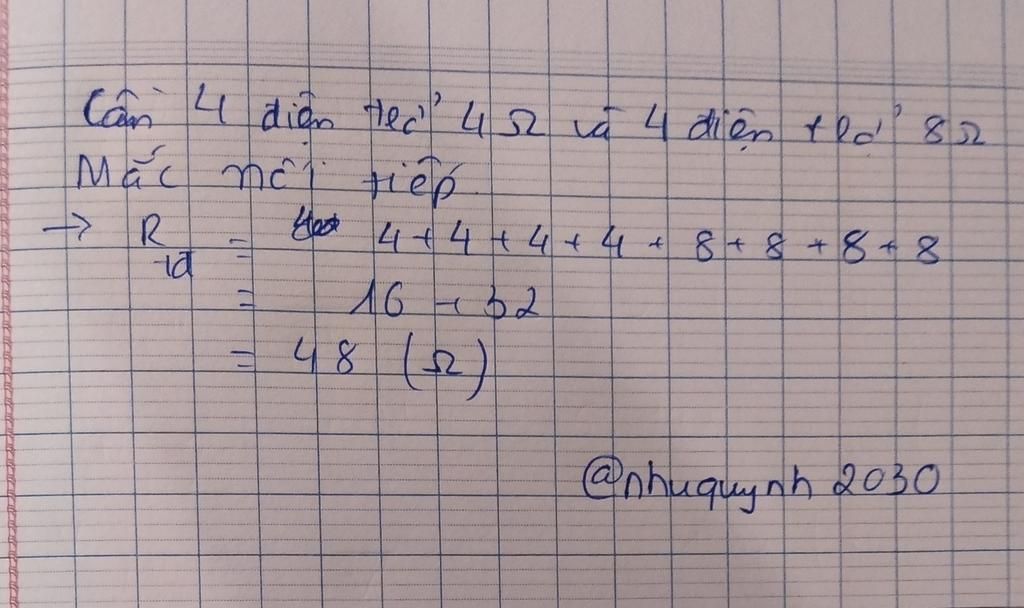 Cần 4 điện trở 4Ω và 4 điện trở 8Ω
Mắc nối tiếp
→ R tđ = 4+4+4+4+8+8+8+8
= 16 + 32
= 48 (Ω)
@nhuquynh 2030